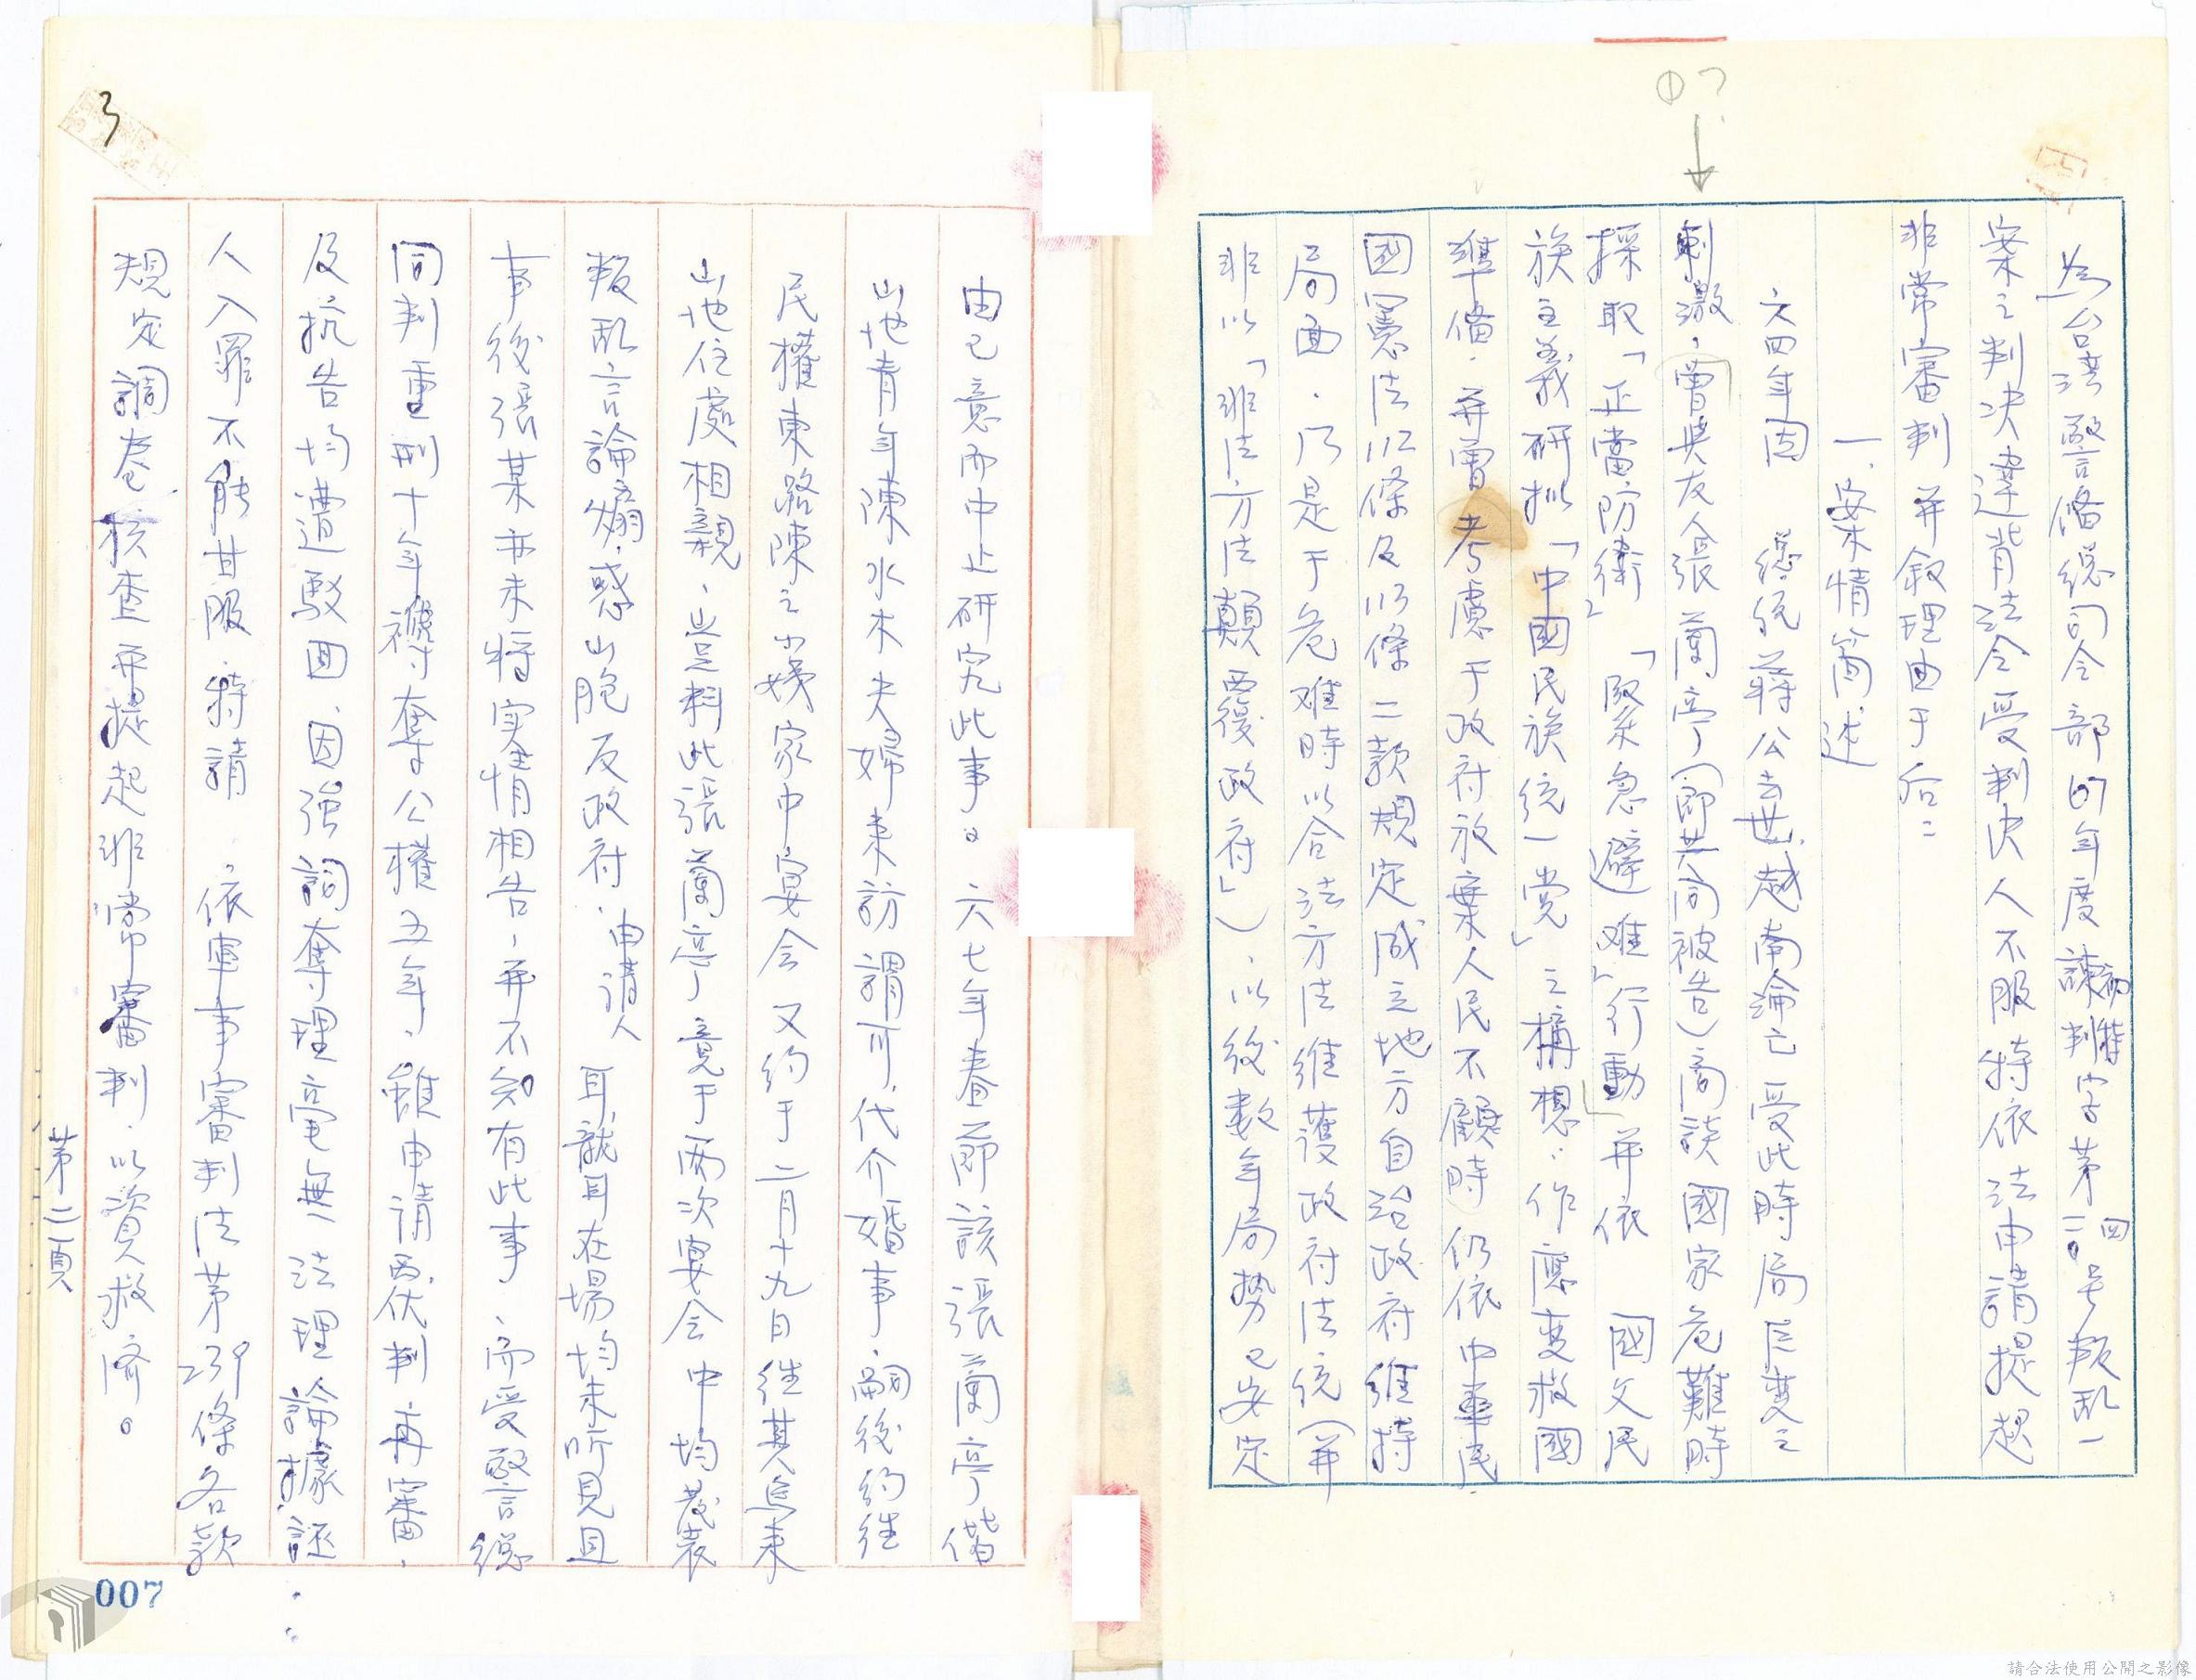 ①?
為台湾警备總司令部67年度諫判字第二0号叛乱一
初特
四
案之判决違背法令受判决人不服特依法申請提起
非常審判并叙理由于后：
一、案情简述
六四年因　總統蔣公去世越南淪亡受此時局巨变之
刺激，曾與友人張蘭亭（即共同被告）商談國家危難時
採取「正當防衛」「緊急避难」行動并依　國父民
族主義研拟「中國民族統一党」之構想，作應变救國
準備，并曾考慮于政府放棄人民不顧時仍依中華民
國憲法112條及113條二款規定成立地方自治政府維持
局面，乃是于危难時以合法方法維護政府法統（并
非以「非法方法顛覆政府」），以後数年局势已安定
3
由已意而中止研究此事。六七年春節該張蘭亭偕
山地青年陳水木夫婦來訪謂可代介婚事，嗣後約往
民權東路陳之小姨家中宴会又约于二月十九日往其烏來
山地住處相親，豈料此張蘭亭竟于兩次宴会中均發表
叛乱言論煽惑山胞反政府，申請人耳聾且在場均未听見且
事後張某亦未将实情相告，并不知有此事，而受警總
同判重刑十年褫奪公權五年，雖申请覆伏判，再審，
及抗告均遭駁回，因強詞奪理毫無法理論據，誣
人入罪不能甘服，特請，依軍事審判法第239條各款
規定調卷核查而提起非常審判，以資救濟。
第二頁
007
請合法使用公開之影像